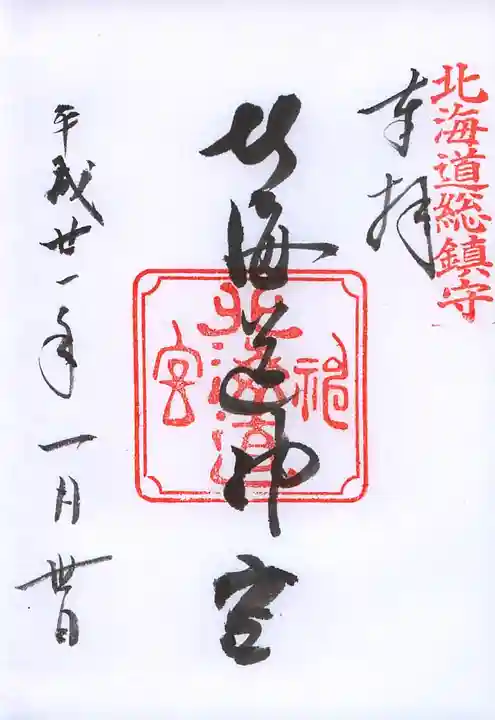 北海道総鎮守
奉拝
北海道神宮
北海道
神宮
平成廿一年一月卅日